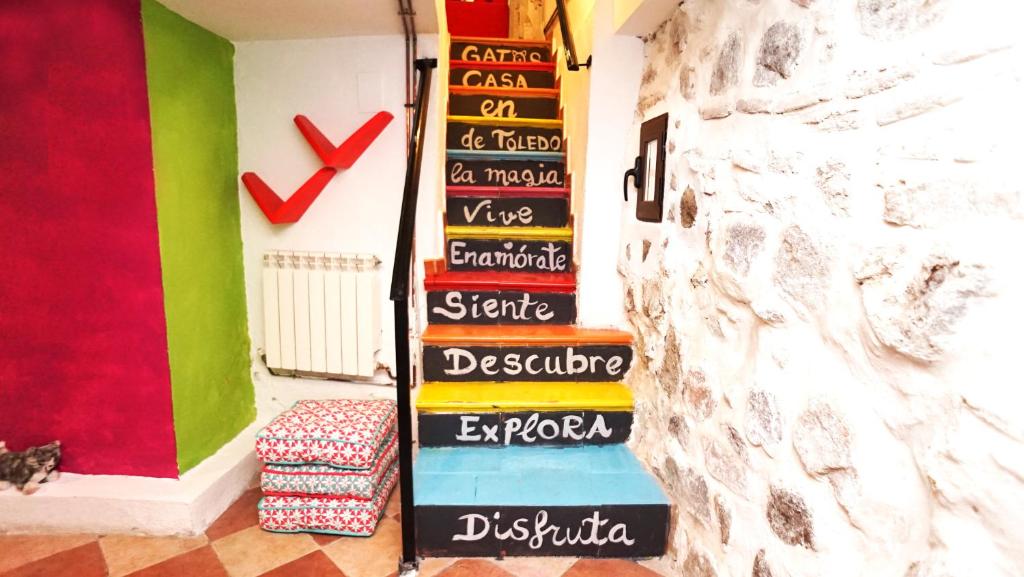 GATOS
CASA
en
de TOLEDO
la magia
Vive
Enamórate
Siente
Descubre
ExploRA
Disfruta